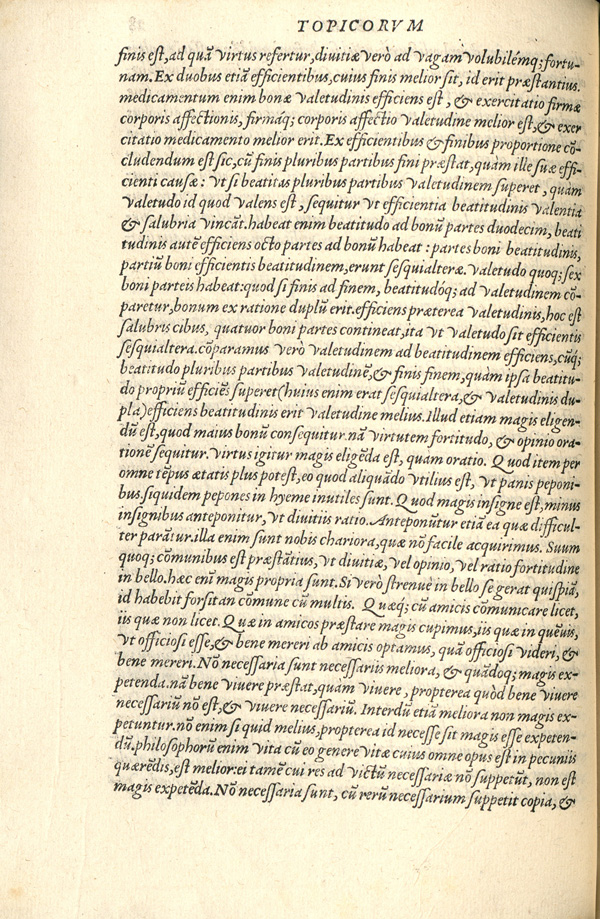 TOPICORVM
finis est, ad quā virtus refertur, divitiæ verò ad vagam volubilémq; fortu-
nam. Ex duobus etiā efficientibus, cuius finis melior sit, id erit præstantius.
medicamentum enim bonæ valetudinis efficiens est, & exercitatio firmæ
corporis affectionis, firmáq; corporis affectio valetudine melior est, & exer
citatio medicamento melior erit. Ex efficientibus & finibus proportione cō-
cludendum est sic, cū finis pluribus partibus fini præstat, quàm ille suæ effi-
cienti causæ: vt si beatitas pluribus partibus valetudinem superet, quàm
valetudo id quod valens est, sequitur vt efficientia beatitudinis valentia
& salubria vincāt. habeat enim beatitudo ad bonū partes duodecim, beati
tudinis autē efficiens octo partes ad bonū habeat: partes boni beatitudinis,
partiū boni efficientis beatitudinem, erunt sesquialteræ. valetudo quoq; sex
boni parteis habeat: quod si finis ad finem, beatitudóq; ad valetudinem cō-
paretur, bonum ex ratione duplū erit. efficiens præterea valetudinis, hoc est
salubris cibus, quatuor boni partes contineat, ita vt valetudo sit efficientis
sesquialtera. cōparamus verò valetudinem ad beatitudinem efficiens, cūq;
beatitudo pluribus partibus valetudinē, & finis finem, quàm ipsa beatitu-
do propriū efficiēs superet (huius enim erat sesquialtera, & valetudinis du-
pla) efficiens beatitudinis erit valetudine melius. Illud etiam magis eligen-
dū est, quod maius bonū consequitur. nā virtutem fortitudo, & opinio ora-
tionē sequitur. virtus igitur magis eligēda est, quam oratio. Quod item per
omne tēpus ætatis plus potest, eo quod aliquādo vtilius est, vt panis peponi-
bus. siquidem pepones in hyeme inutiles sunt. Quod magis insigne est, minus
insignibus anteponitur, vt divitiis ratio. Anteponūtur etiā ea quæ difficul-
ter parātur. illa enim sunt nobis chariora, quæ nō facile acquirimus. Suum
quoq; cōmunibus est præstātius, vt divitiæ, vel opinio, vel ratio fortitudine
in bello. hæc enī magis propria sunt. Si verò strenuè in bello se gerat quispiā,
id habebit forsitan cōmune cū multis. Quæq; cū amicis cōmunicare licet,
iis quæ non licet. Quæ in amicos præstare magis cupimus, iis quæ in quēuis,
vt officiosi esse, & bene mereri ab amicis optamus, quā officiosi videri, &
bene mereri. Nō necessaria sunt necessariis meliora, & quādoq; magis ex-
petenda. nā bene vivere præstat, quàm vivere, propterea quòd bene vivere
necessariū nō est, & vivere necessariū. Interdū etiā meliora non magis ex-
petuntur. nō enim si quid melius, propterea id necesse sit magis esse expeten-
dū. philosophorū enim vita cū eo genere vitæ cuius omne opus est in pecuniis
quærēdis, est melior: ei tamē cui res ad victū necessariæ nō suppetūt, non est
magis expetēda. Nō necessaria sunt, cū rerū necessarium suppetit copia, &